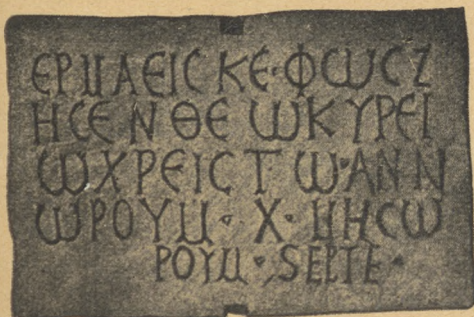 ΕΡΜΑΕΙC ΚΕ·ΦΩC Ζ
ΗCΕ Ν ΘΕ ΩΚΥΡΕΙ
ΩΧΡΕΙCΤ Ω·ΑΝΝ
ΩΡΟΥΜ · Χ · ΜΗCΩ
ΡΟΥΜ · SEPTE ·